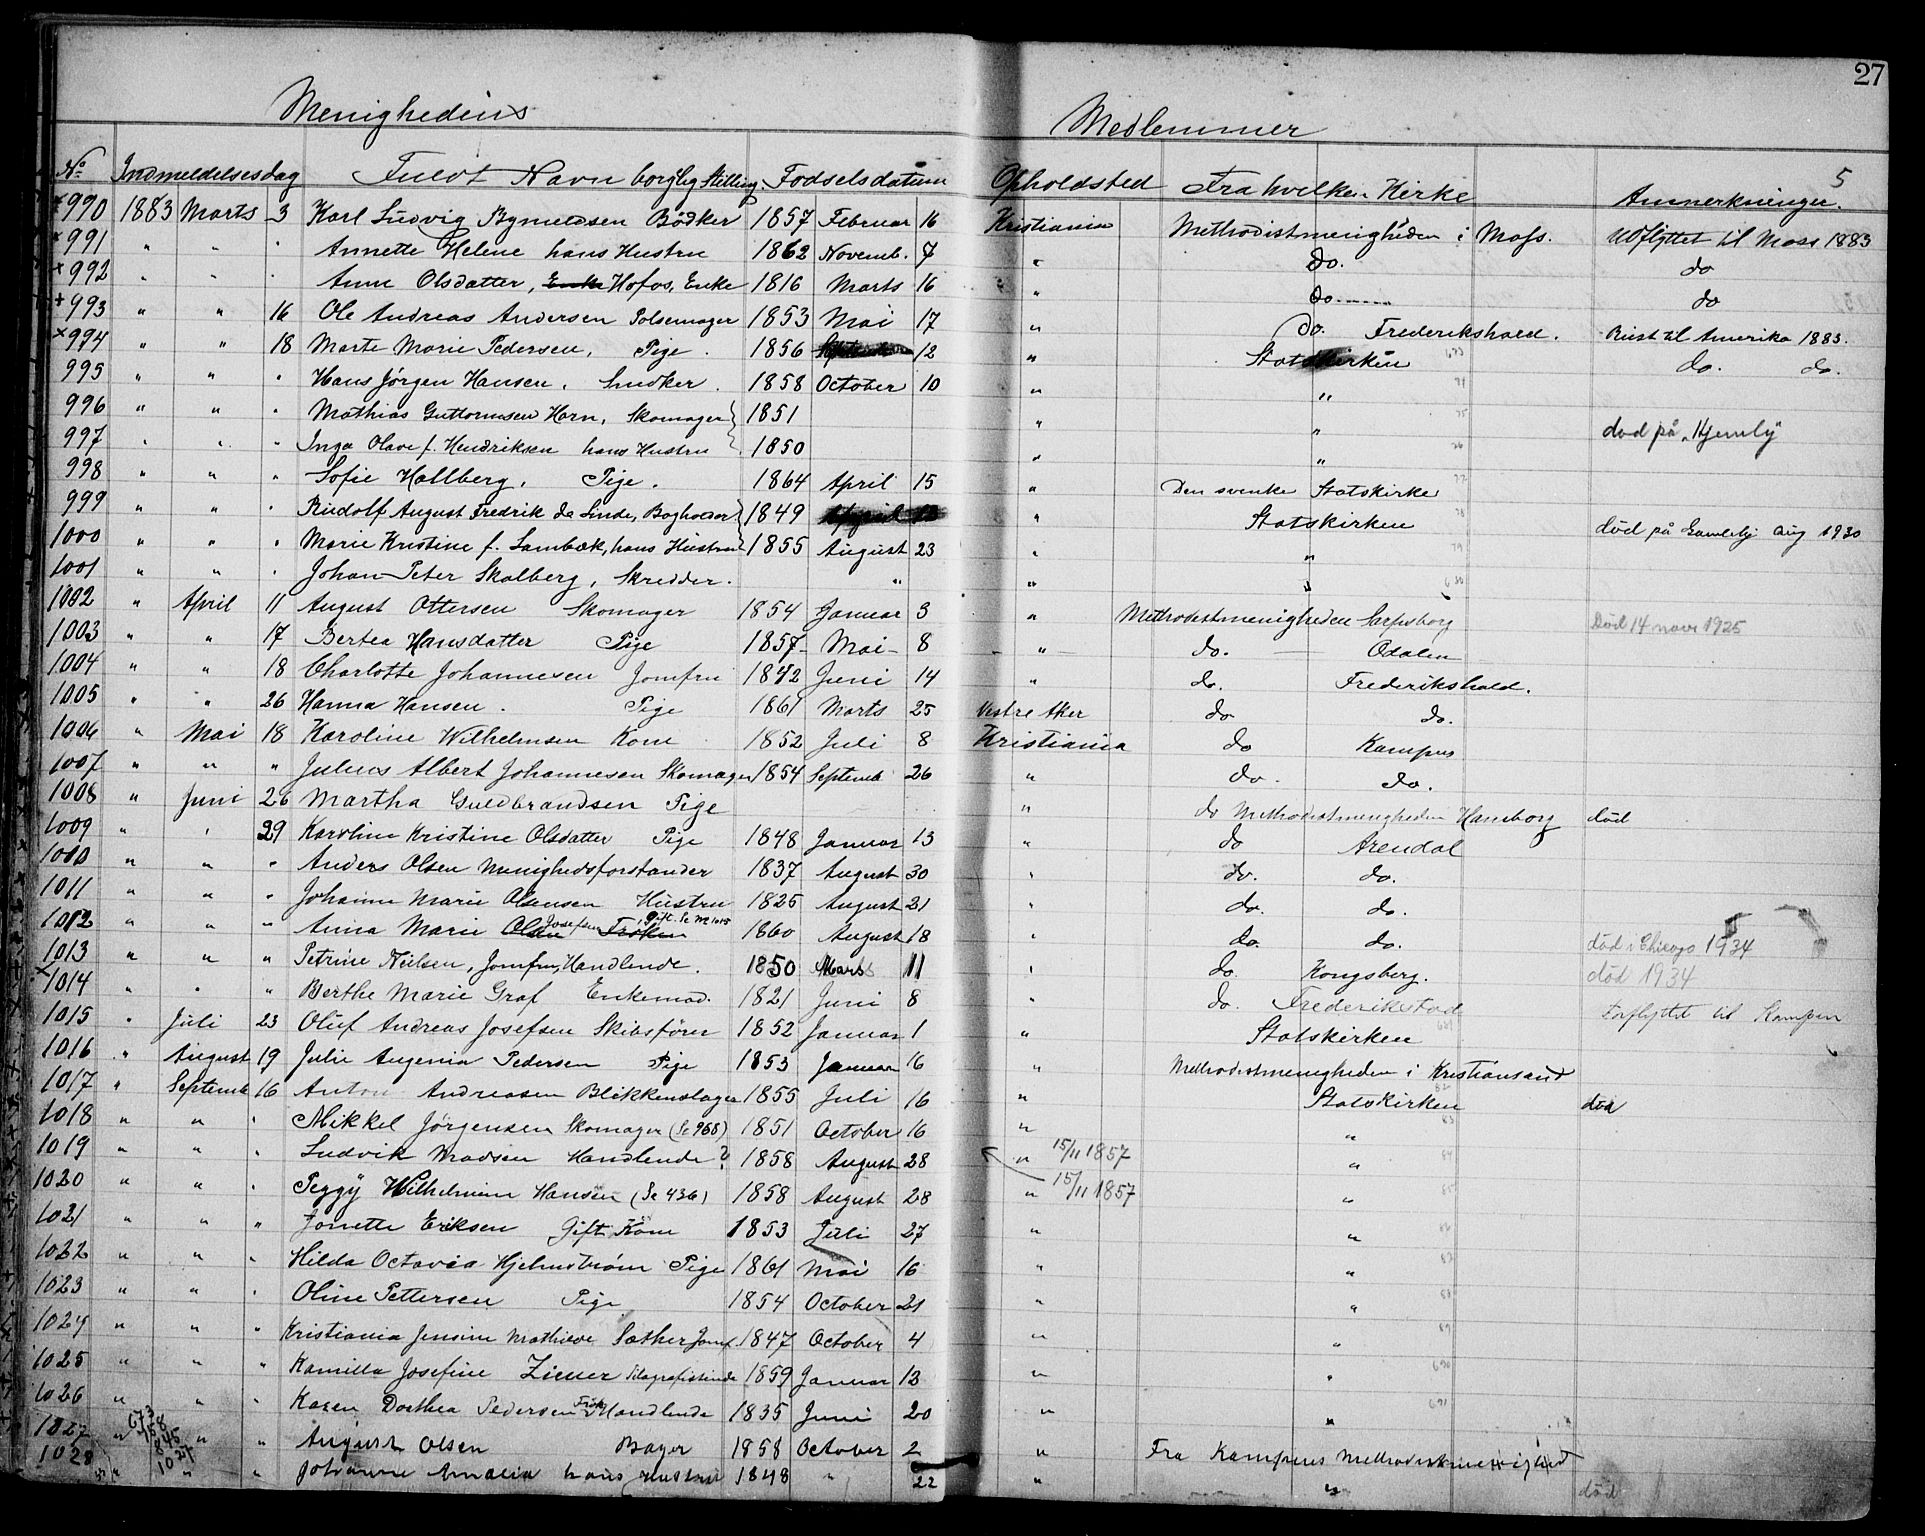 27
Menighedens Medlemmer
5
No Indmeldelsesdag Fuldt Navn borglig Stilling Fødselsdatum Opholdsted Fra hvilken Kirke Anmerkninger.
×990 1883 Marts 3 Karl Ludvig Bødker 1857 Februar 16 Kristiania Methodistmenigheden i Moss. Udflyttet til Moss 1883
×991 " " " Annette Helene hans Hustru 1862 Novemb. 7 " do. do
×992 " " " Anne Olsdatter, Hofos, Enke 1816 Marts 16 " do. do
+993 " " 16 Ole Andreas Andersen Pølsemager 1853 Mai 17 " do. Frederikshald. Reist til Amerika 1883.
×994 " " 18 Marte Marie Pedersen, Pige. 1856 12 " Statskirken do. do.
995 " " " Hans Jørgen Hansen, Snedker. 1858 October 10 " "
996 " " " Mathias Guttormsen Horn, Skomager 1851 " " død på "Hjemly"
997 " " " Inga Olave f. Hendriksen hans Hustru 1850 " "
998 " " " Sofie Hallberg, Pige. 1864 April 15 " Den svenke Statskirke
999 " " " Rudolf August Fredrik da Linde, Bogholder 1849 " Statskirken
1000 " " " Marie Kristine f. Lambæk, hans Hustru 1855 August 23 " " død på Gamlehj. Aug 1930
1001 " " " Johan Peter Skalberg, Skredder. " " "
1002 " April 11 August Ottersen Skomager 1854 Januar 3 " Methodistmenigheden Sarpsborg
1003 " " 17 Bertea Hansdatter Pige 1857 Mai 8 " do. Odalen Død 14 novr 1925
1004 " " 18 Charlotte Johannesen Jomfru 1842 Juni 14 " do. Frederikshald.
1005 " " 26 Hanna Hansen. Pige 1861 Marts 25 Vestre Aker do do.
1006 " Mai 18 Karoline Wilhelmsen Kone 1852 Juli 8 Kristiania do Kampen
1007 " " " Julius Albert Johannesen Skomager 1854 Septemb 26 " do. do.
1008 " Juni 26 Martha Guldbrandsen Pige " do Methodistmenigheden Hamborg død
1009 " " 29 Karoline Kristine Olsdatter Pige 1848 Januar 13 " do Arendal
1010 " " " Anders Olsen Menighedsforstander 1837 August 30 " do. do.
1011 " " " Johanne Marie Hustru 1825 August 21 " do. do.
1012 " " " Anna Marie Olsen Josefsen Frøken, gift. Se No 1015 1860 August 18 " do. do. død i Chicago 1934
1013 " " " Petrine Neilsen, Jomfru, Handlende. 1850 Marts 11 " do Kongsberg. død 1934
×1014 " " " Berthe Marie Graf Enkemad. 1821 Juni 8 " do. Frederikstad Forflyttet til Kampen
1015 " Juli 23 Oluf Andreas Josefsen Skibsfører 1852 Januar 1 " Statskirken
1016 " August 19 Julie Augenia Pedersen Pige 1853 Januar 16 " Methodistmenigheden i Kristiansand
1017 " Septemb 16 Anton Andreasen Blikkenslager 1855 Juli 16 " Statskirken død
1018 " " " Mikkel Jørgensen Skomager (Se 968) 1851 October 16 " "
1019 " " " Ludvik Madsen Handlende? 1858 August 28 " 15/11 1857 "
1020 " " " Peggy Wilhelmine Hansen (Se 436) 1858 August 28 " 15/11 1857 "
1021 " " " Jonette Eriksen Gift Kone 1853 Juli 27 " "
1022 " " " Hilda Octavia Hjelmstrøm Pige 1861 Mai 16 " "
1023 " " " Oline Pettersen Pige 1854 October 21 " "
1024 " " " Kristiania Jensine Mathilde Sæther Jomf. 1847 October 4 " "
1025 " " " Kamilla Josefine Ziener Telegrafistinde 1859 Januar 12 " "
1026 " " " Karen Dorthea Pedersen Frøk. Handlende 1835 Juni 20 " "
1027 " " " August Olsen Bager 1858 October 2 " Fra Kampens Methodistmenighed
1028 " " " Johanne Amalia hans Hustru 1848 " 22 " " død
673
158
845
1027